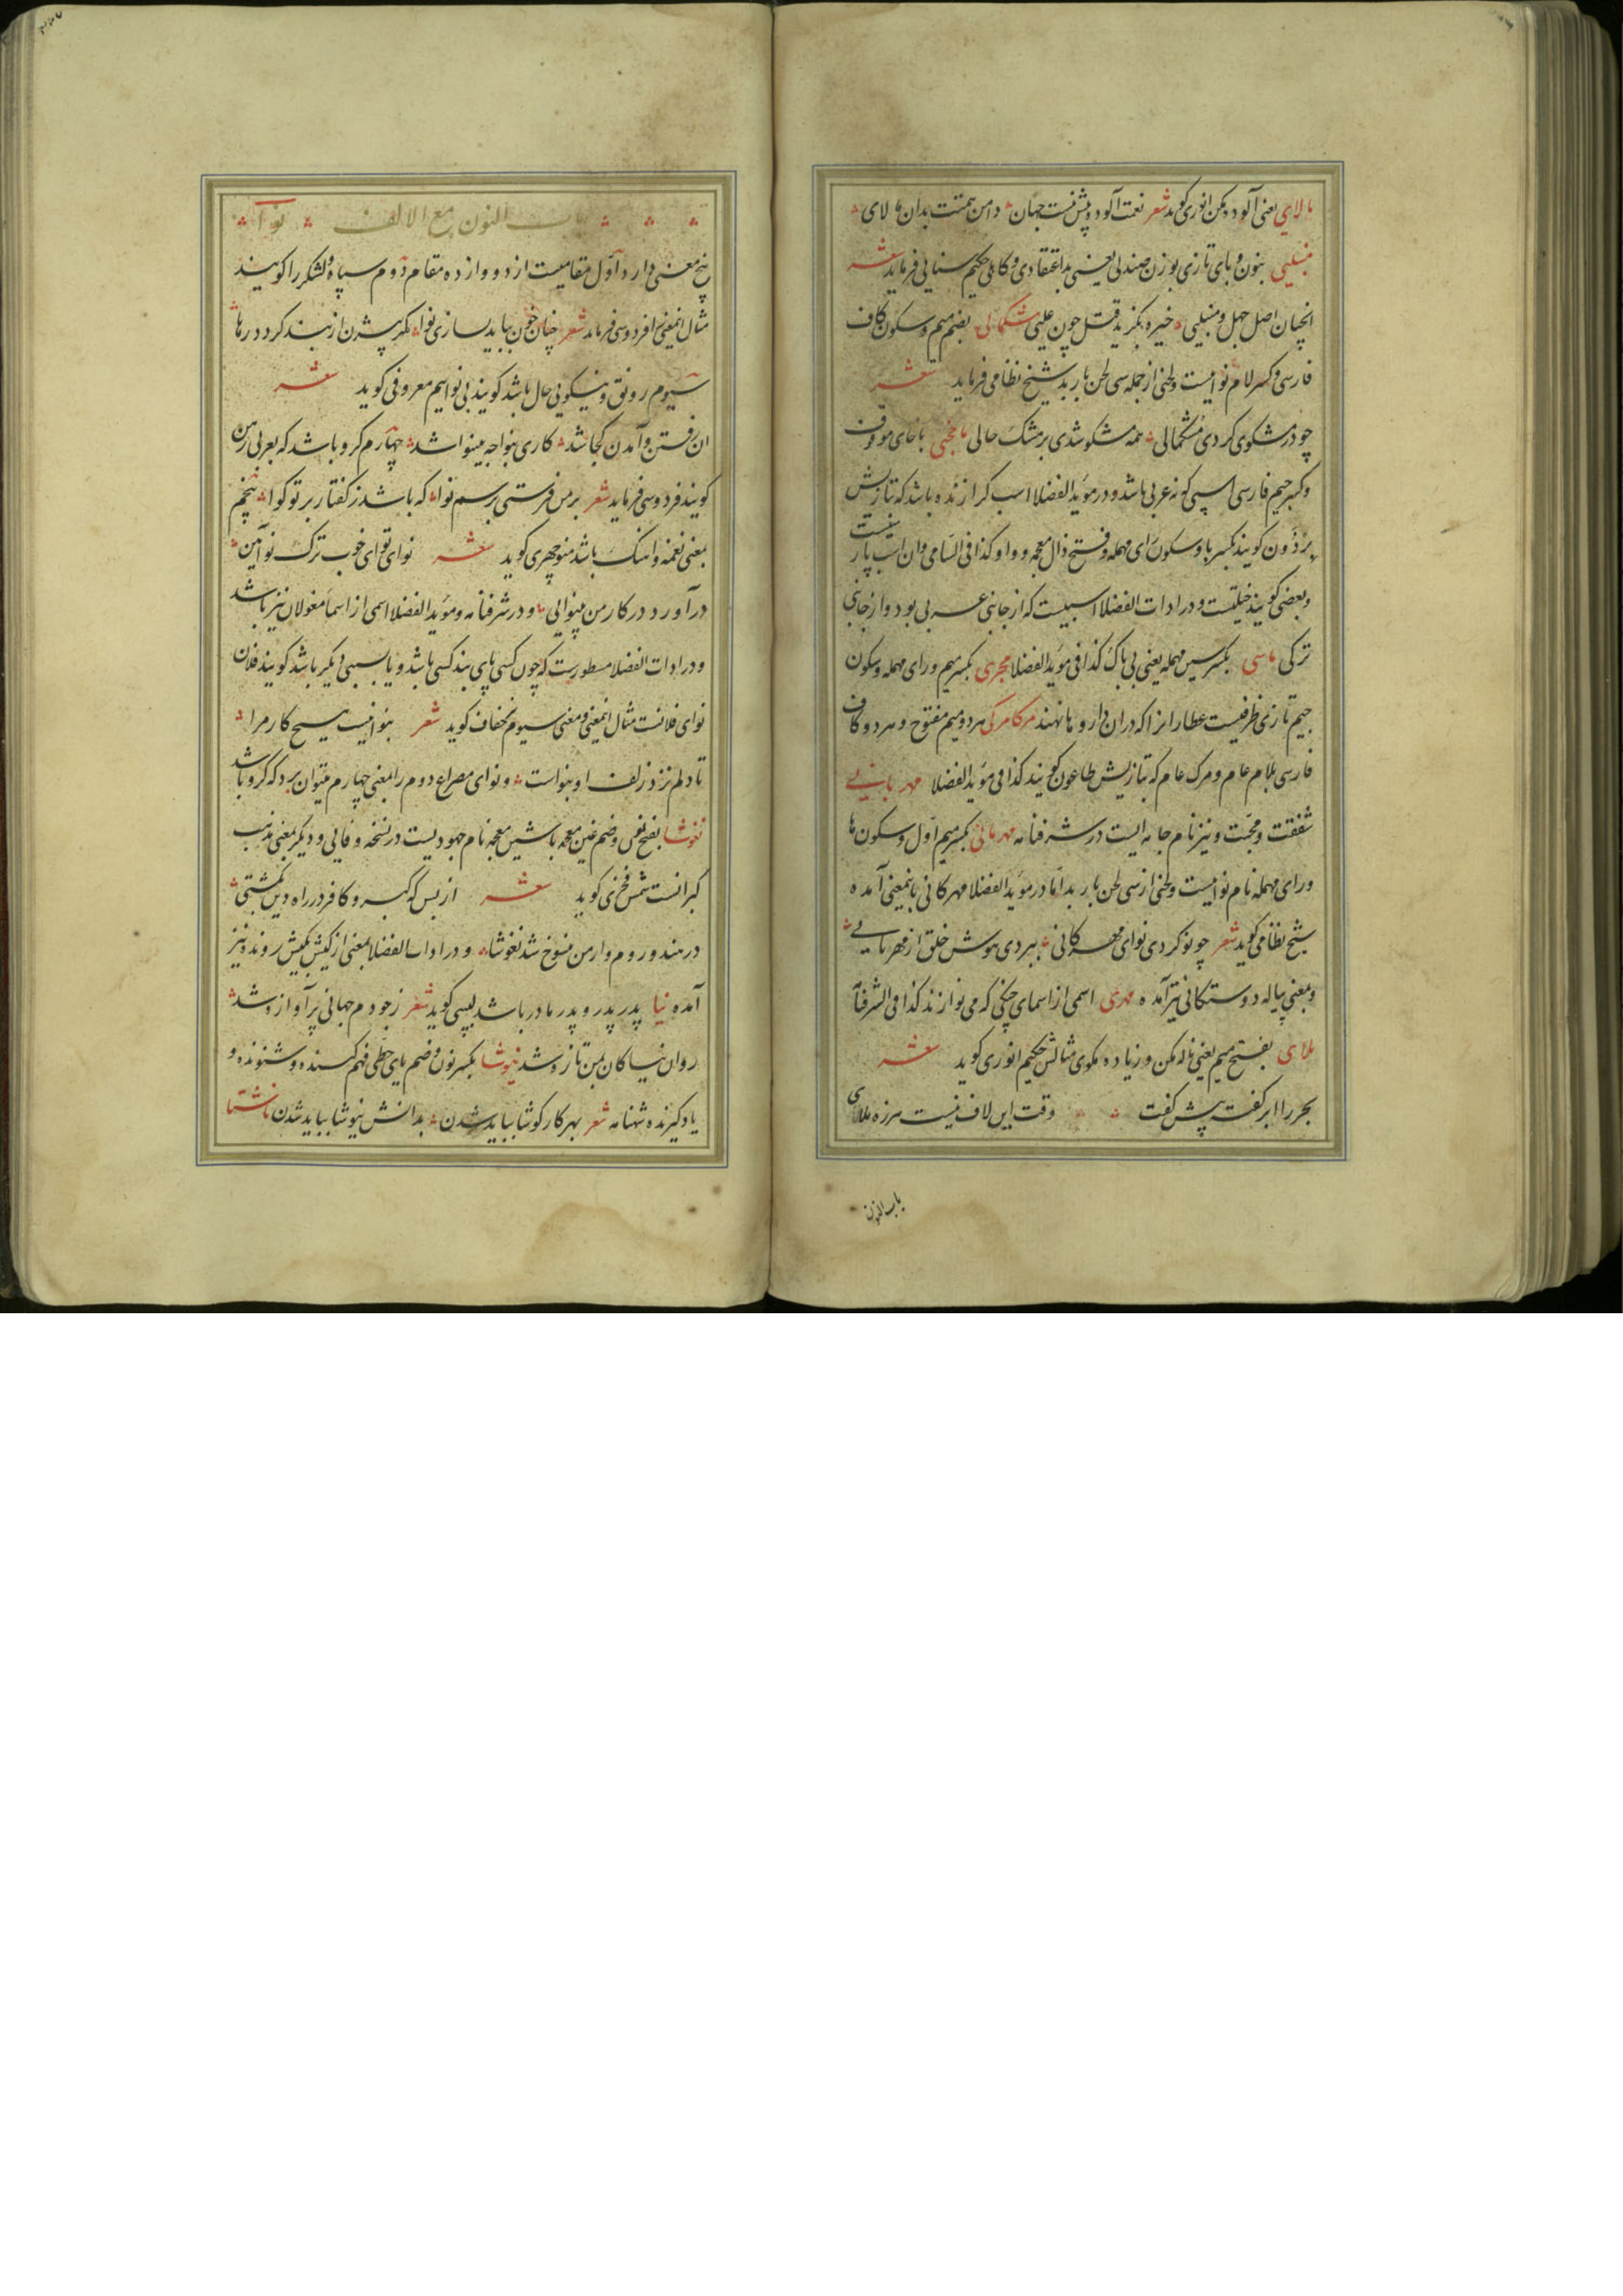 مالای یعنی آلوده مکن انوری کوید شعر نعمت آلوده پیش نیست جهان دامن همتت بدان مالای
منبلی بنون و بای تازی بوزن صندلی یعنی بداعتقادی و کاهلی حکیم سنایی فرماید شعر
انچنان اصل جهل و منبلیی خیره بکزید قتل چون علیی مشکمالی بضم میم و سکون کاف
فارسی و کسر لام نوائیست و لحنی از جمله سی لحن باربد شیخ نظامی فرماید شعر
چو در مشکوی کردی مشکمالی همه مشکو شدی پر مشک حالی ماخچی باخای موقوف
و کسر جیم فارسی اسپی کونه عربی باشد و در موید الفضلا اسب کرازنده باشد که بتازیش
برذون کویند بکسر با و سکون رای مهمله و فتح ذال معجمه و واو کذا فی السامی و ان اسب پار
و بعضی کویند خیلیست و در ادات الفضلا اسپیست که از جانبی عربی بود و از جانبی
ترکی ماسی بکسر سین مهمله یعنی بی باک کذا فی موید الفضلا مجری بکسر میم و رای مهمله و سکون
جیم تازی ظرفیست عطارانرا که در ان داروها نهند مرکامرکی هر دو میم مفتوح و هر دو کاف
فارسی بلام عام و مرک عام که بتازیش طاعون کویند کذا فی موید الفضلا مهربانی
شفقت و محبت و نیز نام جامه ایست در شرفنامه مهرکانی بکسر میم اول و سکون ها
و رای مهمله نام نوائیست و لحنی از سی لحن باربد اما در موید الفضلا مهرکانی باینمعنی آمده
شیخ نظامی کوید شعر چو نو کردی نوای مهرکانی ببردی هوش خلق از مهربانی
و بمعنی پیاله دوستکانی نیز آمده مهری اسمی از اسمای چنکی که می نوازند کذا فی الشرفنامه
ملای بفتح میم یعنی ناله مکن و زیاده مکوی مثالش حکیم انوری کوید شعر
بحر را ابر کفت پیش کفت وقت این لاف نیست هرزه ملای
باب النون
باب النون مع الالف نوا
پنج معنی دارد اول مقامیست از دوازده مقام دوم سپاه و لشکر را کویند
مثال اینمعنی را فردوسی فرماید شعر چنان چون بباید بسازی نوا مکر بیژن از بند کردد رها
سیوم رونق و نیکویی حال باشد کویند بی نوائیم معروفی کوید شعر
ان رفتن و آمدن کجا شد کاری بنوا چه بینوا شد چهارم کرو باشد که بعربی رهن
کویند فردوسی فرماید شعر بر من فرستی برسم نوا که باشد ز کفتار بر تو کوا پنجم
بمعنی نغمه و اهنک باشد منوچهری کوید شعر نوای تو ای خوب ترک نوآیین
درآورد در کار من بینوایی و در شرفنامه و موید الفضلا اسمی از اسماء مغولان نیز باشد
و در ادات الفضلا مسطورست که چون کسی پای بند کسی باشد و یا بسببی دیکر باشد کویند فلان
نوای فلانست مثال اینمعنی و معنی سیوم خفاف کوید شعر بنوا نیست هیچ کار مرا
تا دلم نزد زلف او بنواست و نوای مصراع دوم را بمعنی چهارم میتوان برد که کرو باشد
نغوشا بفتح نون و ضم غین معجمه با شین معجمه نام جهودیست در نسخه وفایی و دیکر بمعنی مذهب
کبرانست شمس فخری کوید شعر از بس که کبر و کافر در راه دین بکشتی
در هند و روم و ارمن منسوخ شد نغوشا و در ادات الفضلا بمعنی از کیش بکیش روند نیز
آمده نیا پدر پدر و پدر مادر باشد لبیبی کوید شعر ز جودم جهانی پر آوازه شد
روان نیاکان بمن تازه شد نیوشا بکسر نون و ضم یای حطی فهم کننده و شنونده و
یاد کیرنده شهنامه شعر بهر کار کوشا بباید شدن بدانش نیوشا بباید شدن ناشتا